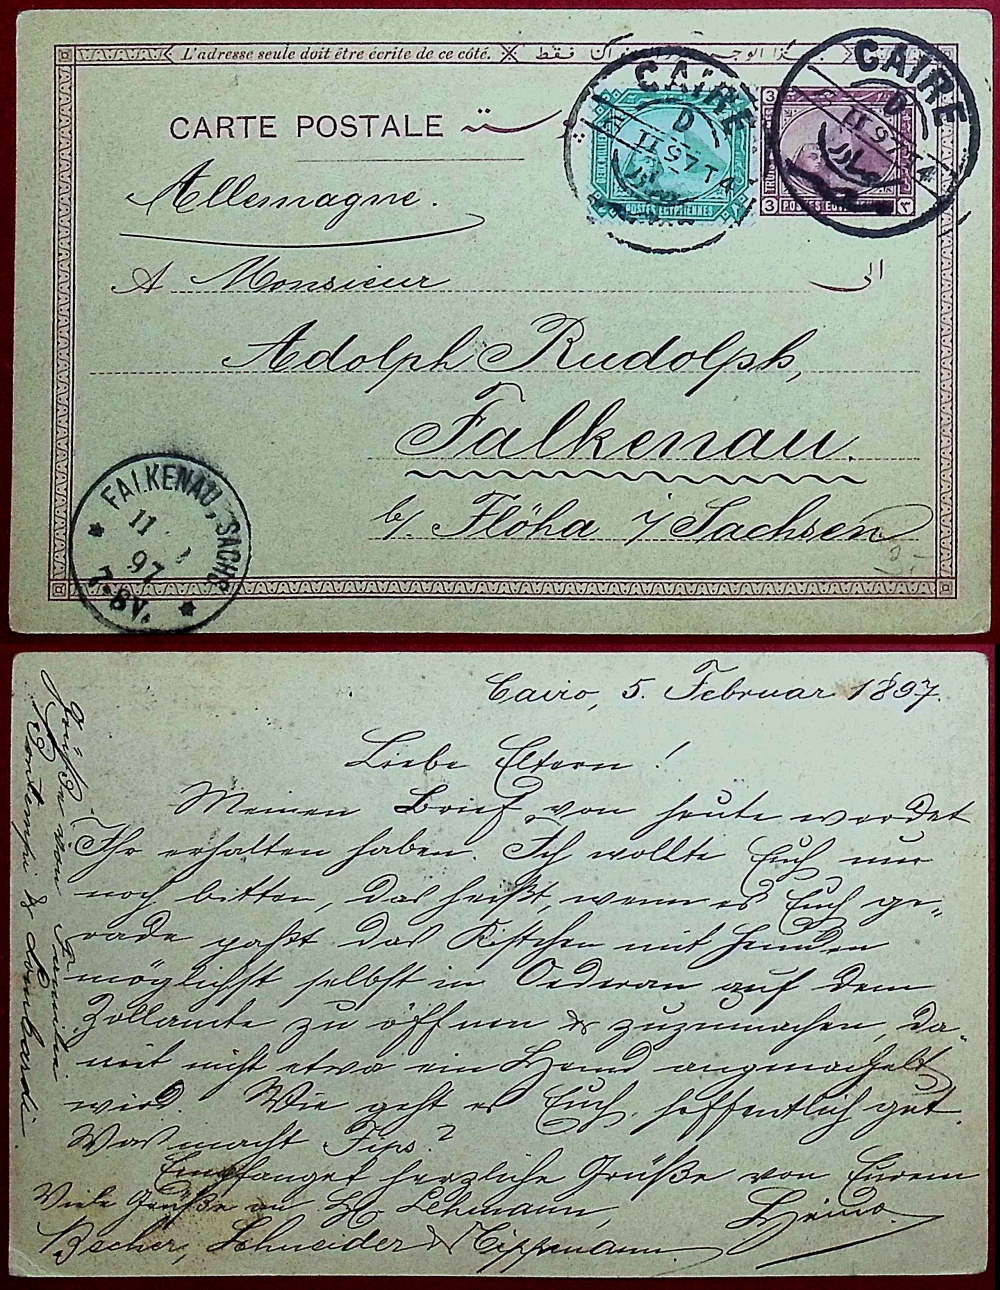 L'adresse seule doit être écrite de ce côté.
CARTE POSTALE
CAIRE
D
5 II 97 T4
CAIRE
D
5 II 97 T4
POSTES EGYPTIENNES
3 POSTES EGYPTIENNES ٣
Allemagne.
A Monsieur
الى
Adolph Rudolph,
Falkenau.
b/. Flöha i/Sachsen
FALKENAU, SACHS.
11 2
97
7-8V.
Cairo, 5. Februar 1897.
Liebe Eltern!
Meinen Brief von heute werdet
Ihr erhalten haben. Ich wollte Euch nur
noch bitten, das heißt, wenn es Euch ge-
rade paßt das Kistchen mit Hemden
möglichst selbst in Oederan auf dem
Zollamte zu öffnen & zuzumachen, da-
mit nicht etwa ein Hemd angemaßelt
wird. Wie geht es Euch, hoffentlich gut.
Was macht Fips?
Empfanget herzliche Grüße von Eurem
Heino.
Viele Grüße an H. Lehmann,
Becher, Schneider & Tippmann
Grüße von Familie
& Lombardi